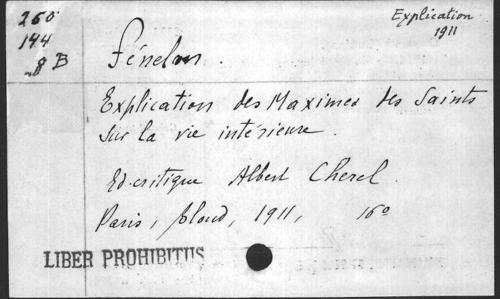 260
144
8 B
Explication
1911
Fénelon.
Explication des Maximes des Saints
sur la vie intérieure.
Ed. critique Albert Cherel.
Paris, Bloud, 1911, 16º
LIBER PROHIBITUS